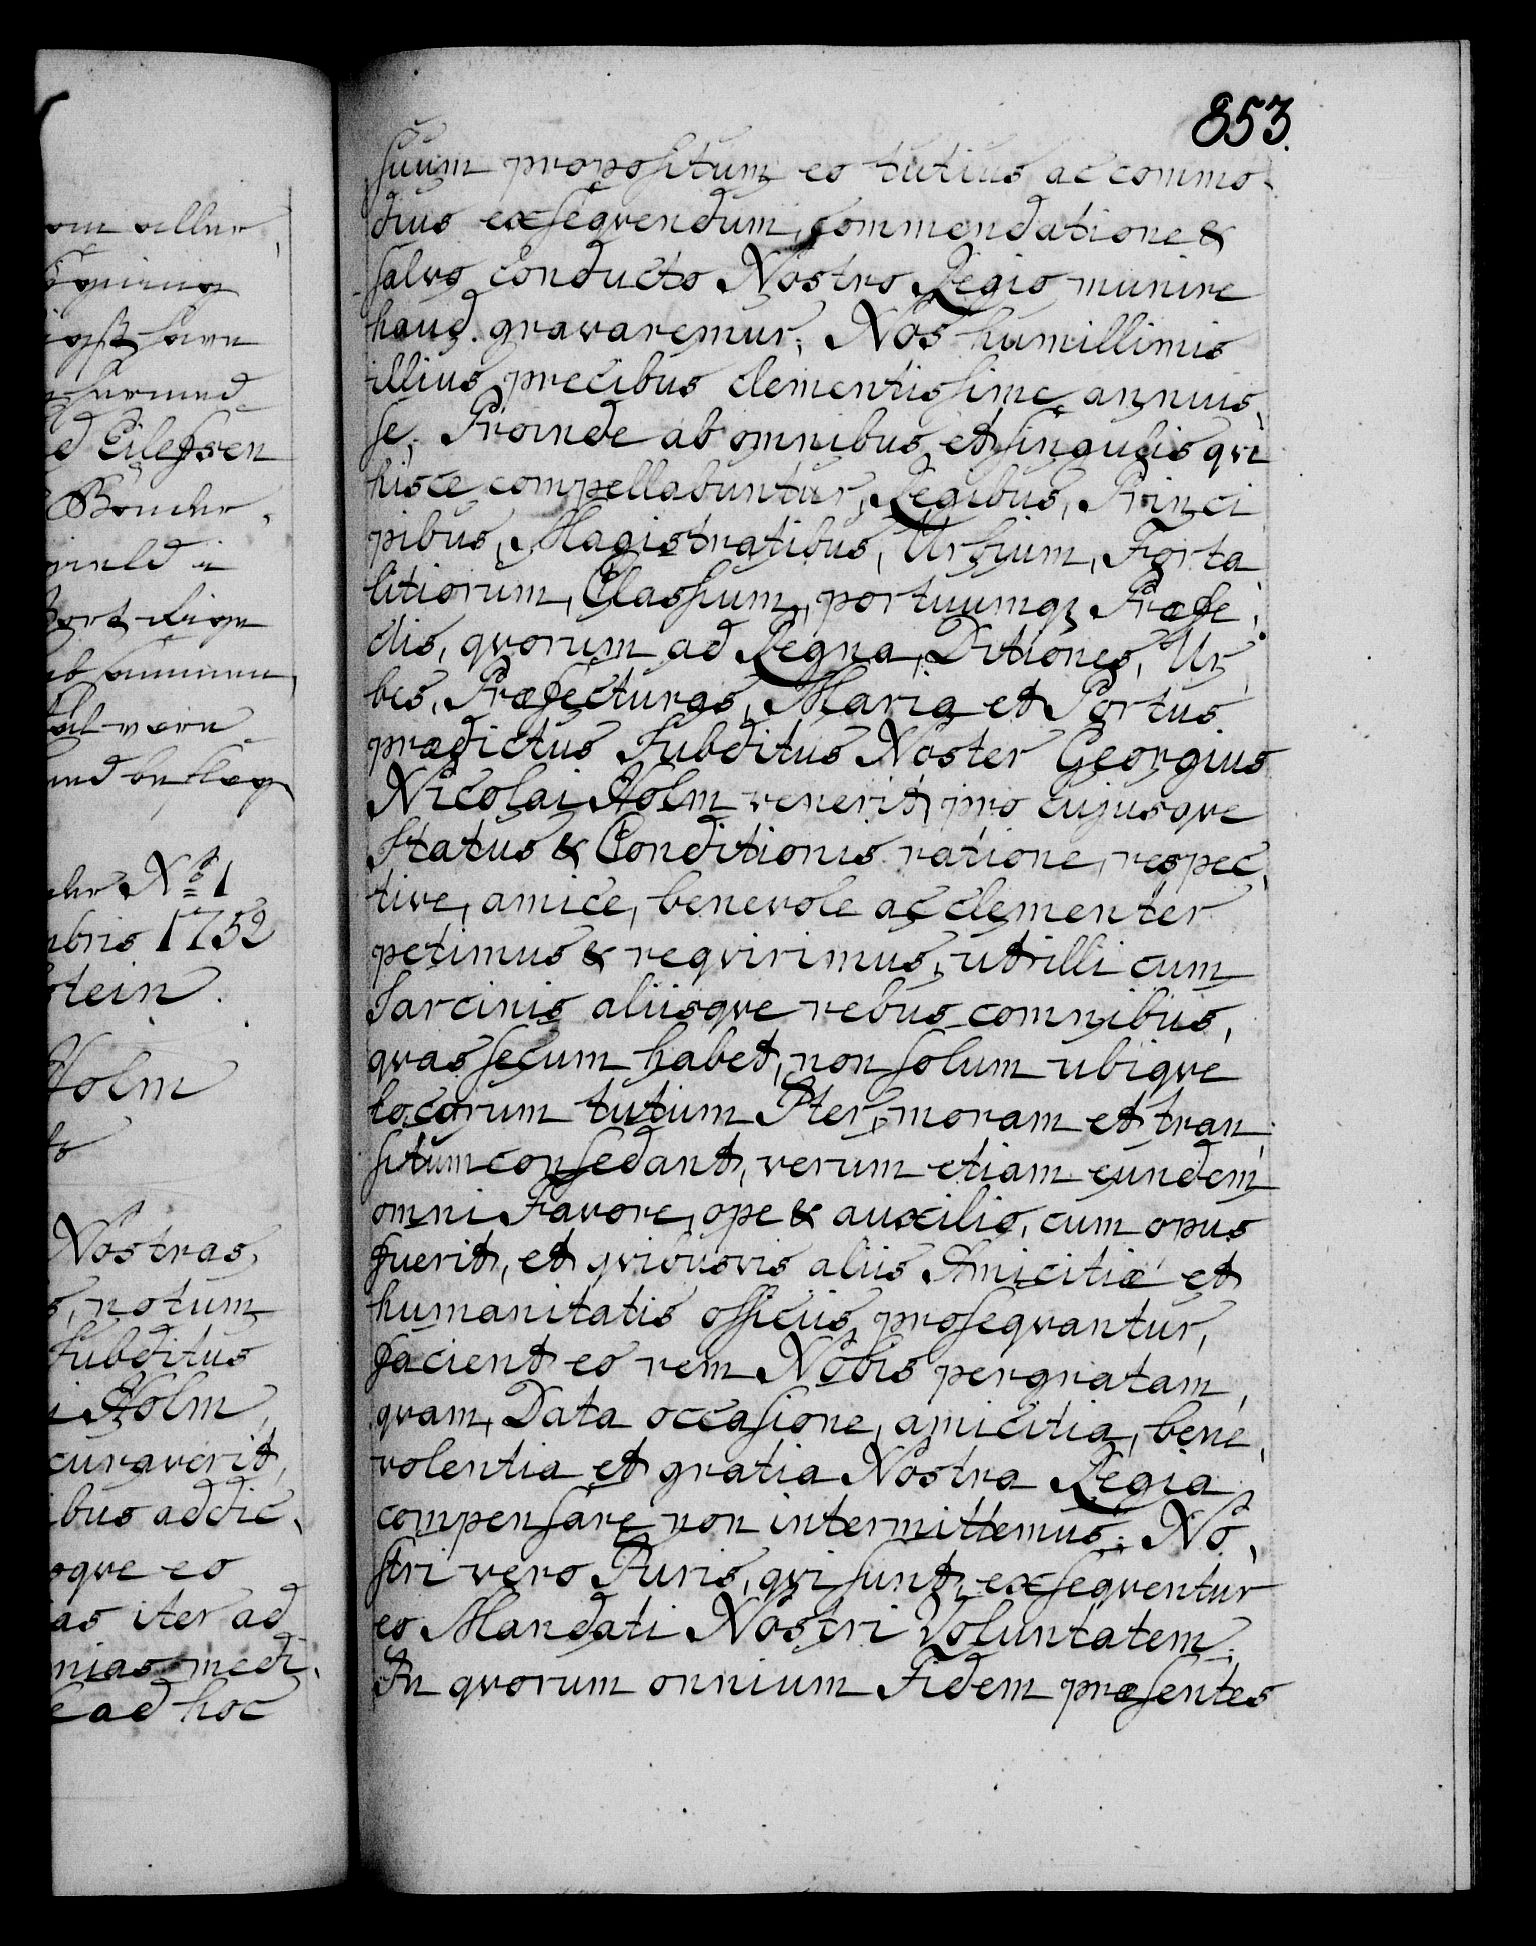 853.
suum propositum eo tutius ac commo-
dius exseqvendum, commendatione &
salvo Conducto Nostro Regio munire
haud gravaremur, Nos humillimis
illius precibus clementissime annuis-
se. Proinde ab omnibus et singulis qvi
hisce compellabuntur, Regibus, Princi
pibus, Magistratibus, Urbium, Forta
litiorum, Classium, portuumqz Præfe-
ctis, qvorum ad Regna, Ditiones, Ur
bes, Præfecturas, Maria et Portus
prædictus Subditus Noster Georgius
Nicolai Holm venerit, pro cujusqve
Status & Conditionis ratione, respec-
tive, amice, benevole ac clementer
petimus & reqvirimus, ut illi cum
Sarcinis aliisqve rebus omnibus,
qvas secum habet, non solum ubiqve
locorum tutum Iter, moram et tran
situm consedant, verum etiam eundem
omni Favore, ope & auxilio, cum opus
fuerit, et qvibusvis aliis Amicitiæ et
humanitatis officiis proseqvantur,
facient eo rem Nobis pergratam,
qvam, Data occasione, amicitia, bene-
volentia et gratia Nostra Regia
compensare non intermittemus. No-
stri vero Juris, qvi sunt, exseqventur
eo Mandati Nostri Voluntatem.
In qvorum omnium Fidem præsentes
ed Eilersen
No 1
bris 1752
stein.
Holm
Nostras
notum
Subditus
i Holm,
curaverit,
ibus addic-
oqve eo
as iter ad
nias medi-
e ad hoc